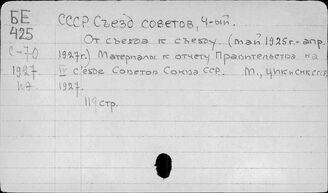 БЕ
425
С-70
1927
н7
СССР Съезд советов, 4-ый.
От съезда к съезду. (май 1925г.-апр.
1927г.) Материалы к отчету Правительства на
IV с'езде Советов Союза ССР. М., ЦИК и СНК СССР
1927.
119 стр.